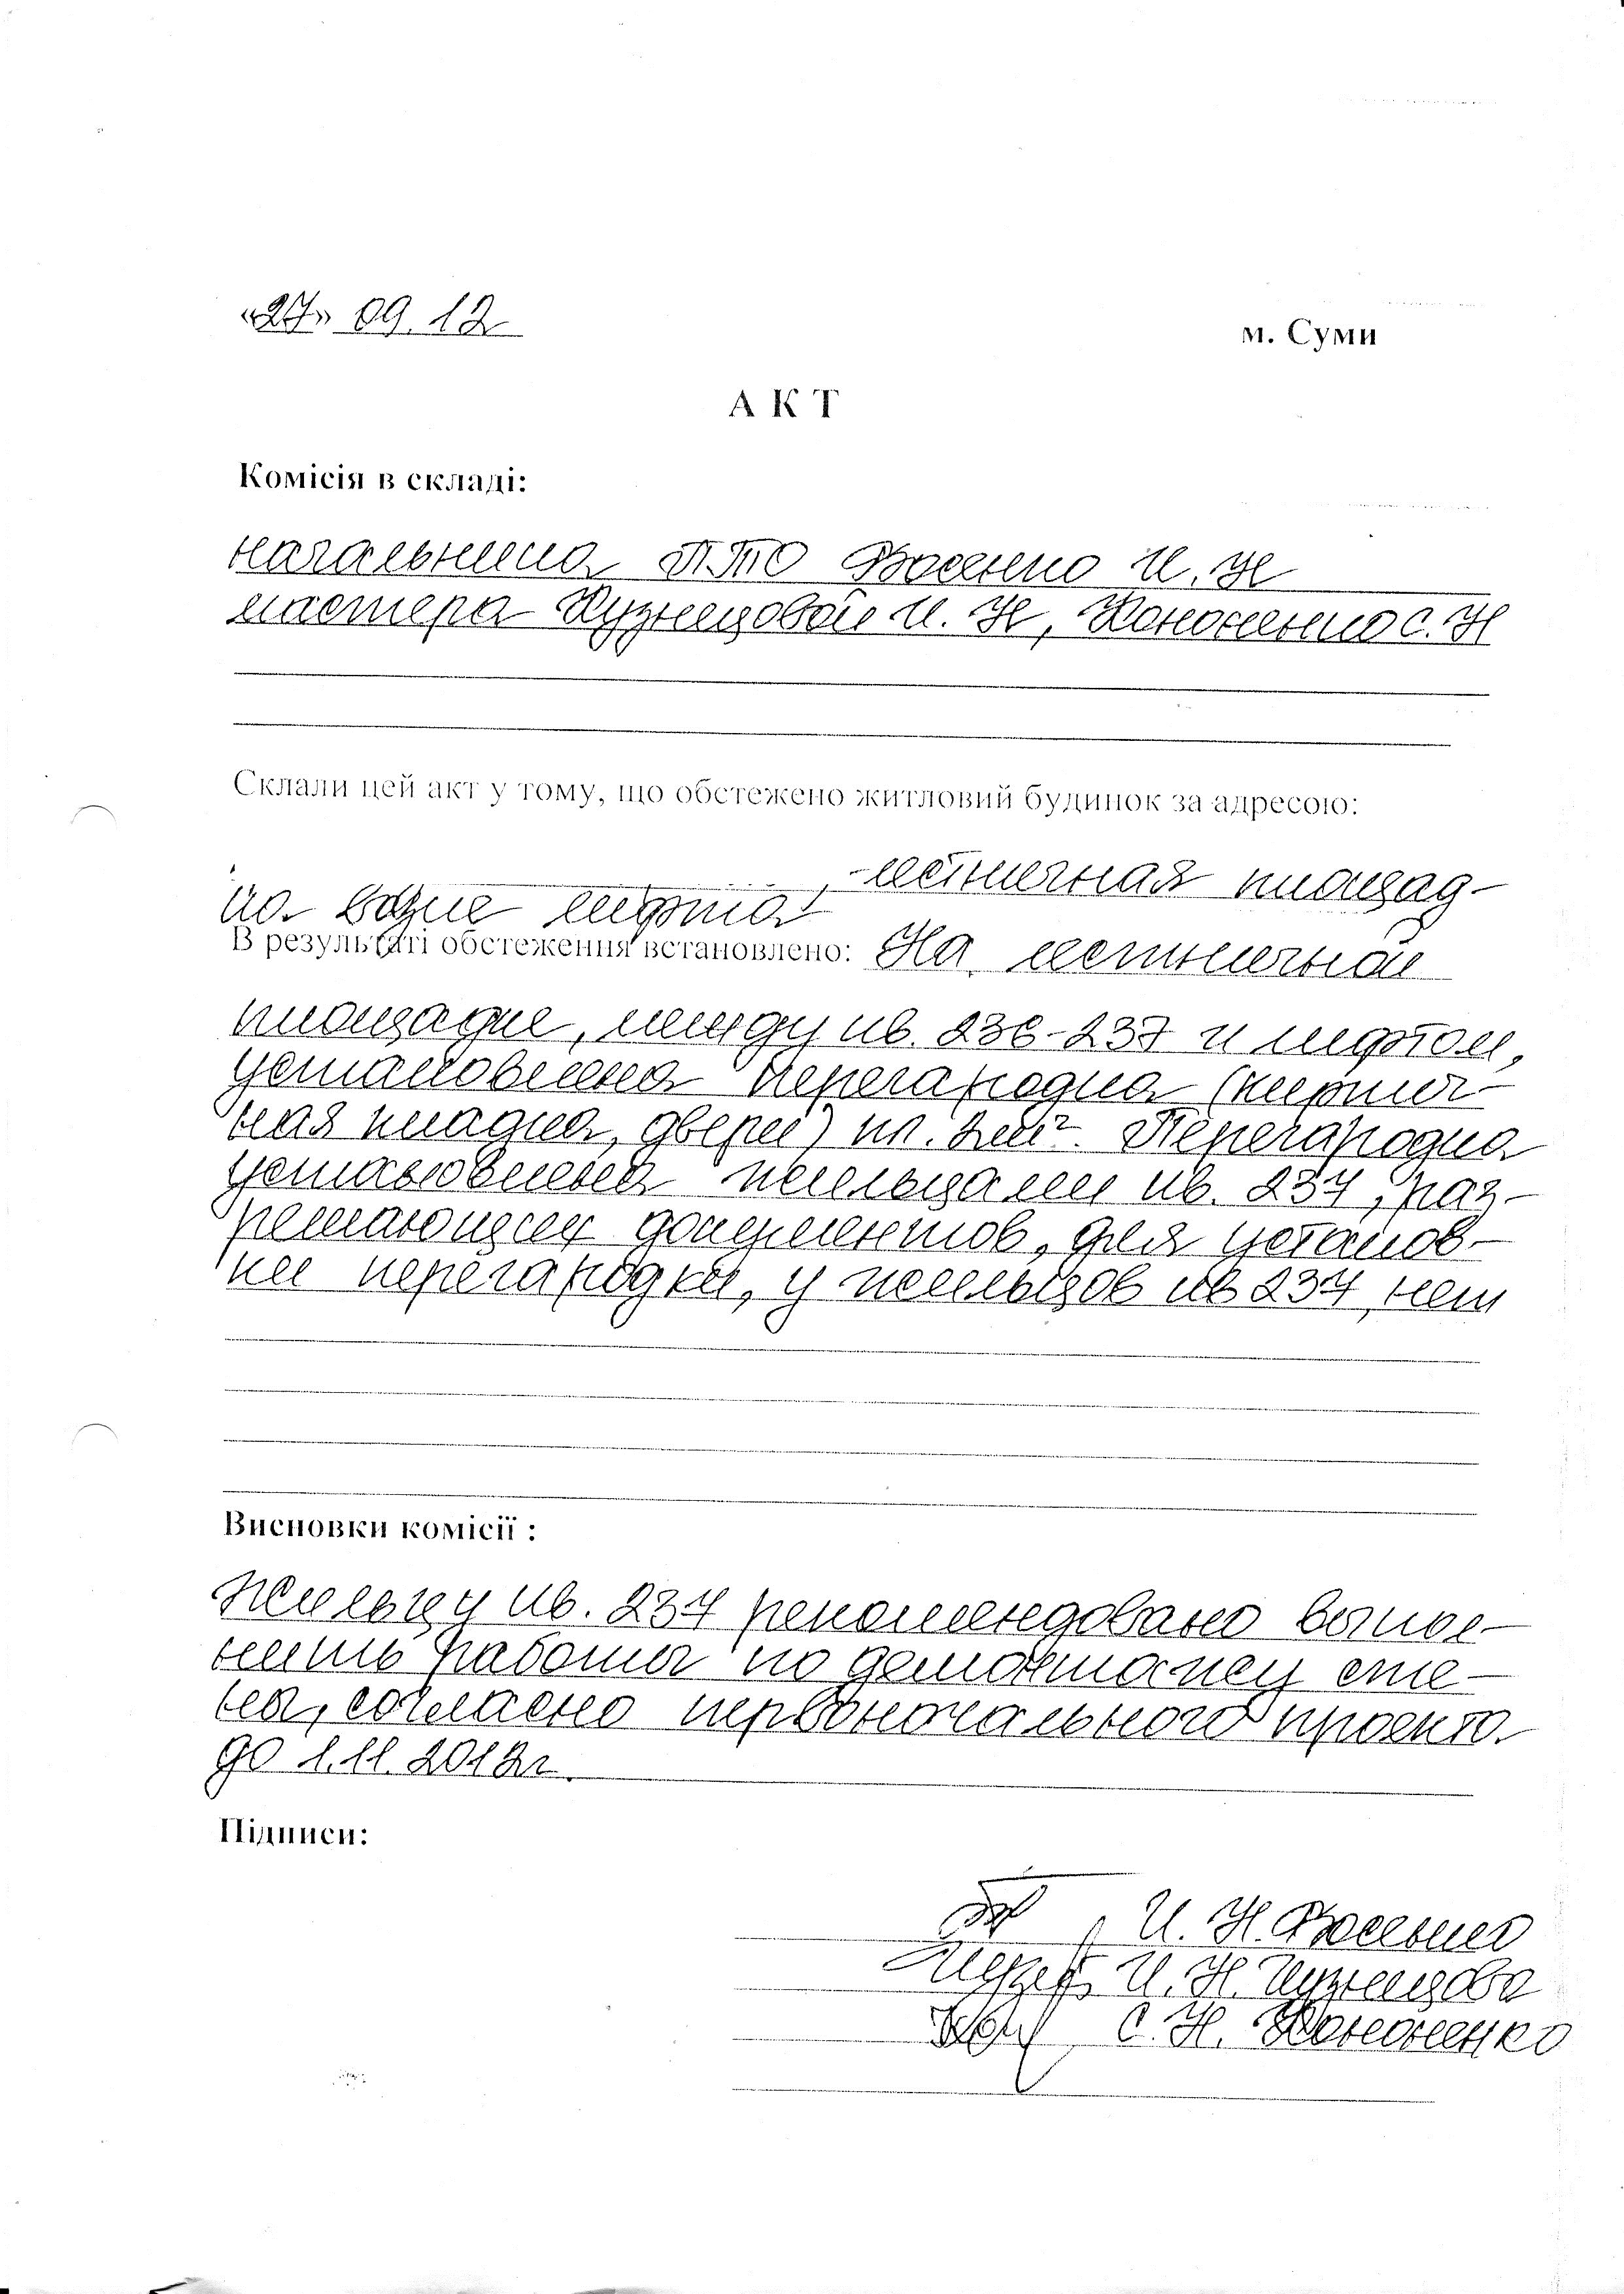 «27» 09. 12
м. Суми
А К Т
Комісія в складі:
начальника И. Н
мастера Кузнецовой И. Н, Кононенко С. Н
Склали цей акт у тому, що обстежено житловий будинок за адресою:
лестничная площад-
ка возле лифта
В результаті обстеження встановлено: На лестничной
площадке, между кв. 236-237 и лифтом,
установлена перегородка (кирпич-
ная кладка, дверь) Перегородка
установлена жильцами кв. 234, раз-
решающих документов, для установ-
ки перегородки, у жильцов кв 234 нет
Висновки комісії :
Жильцу кв. 234 рекомендовано выпол-
нить работы по демонтажу сте-
ны, согласно первоначального проекта
до 1.11.2012г.
Підписи:
И. Н.
И. Н. Кузнецова
С. Н. Кононенко